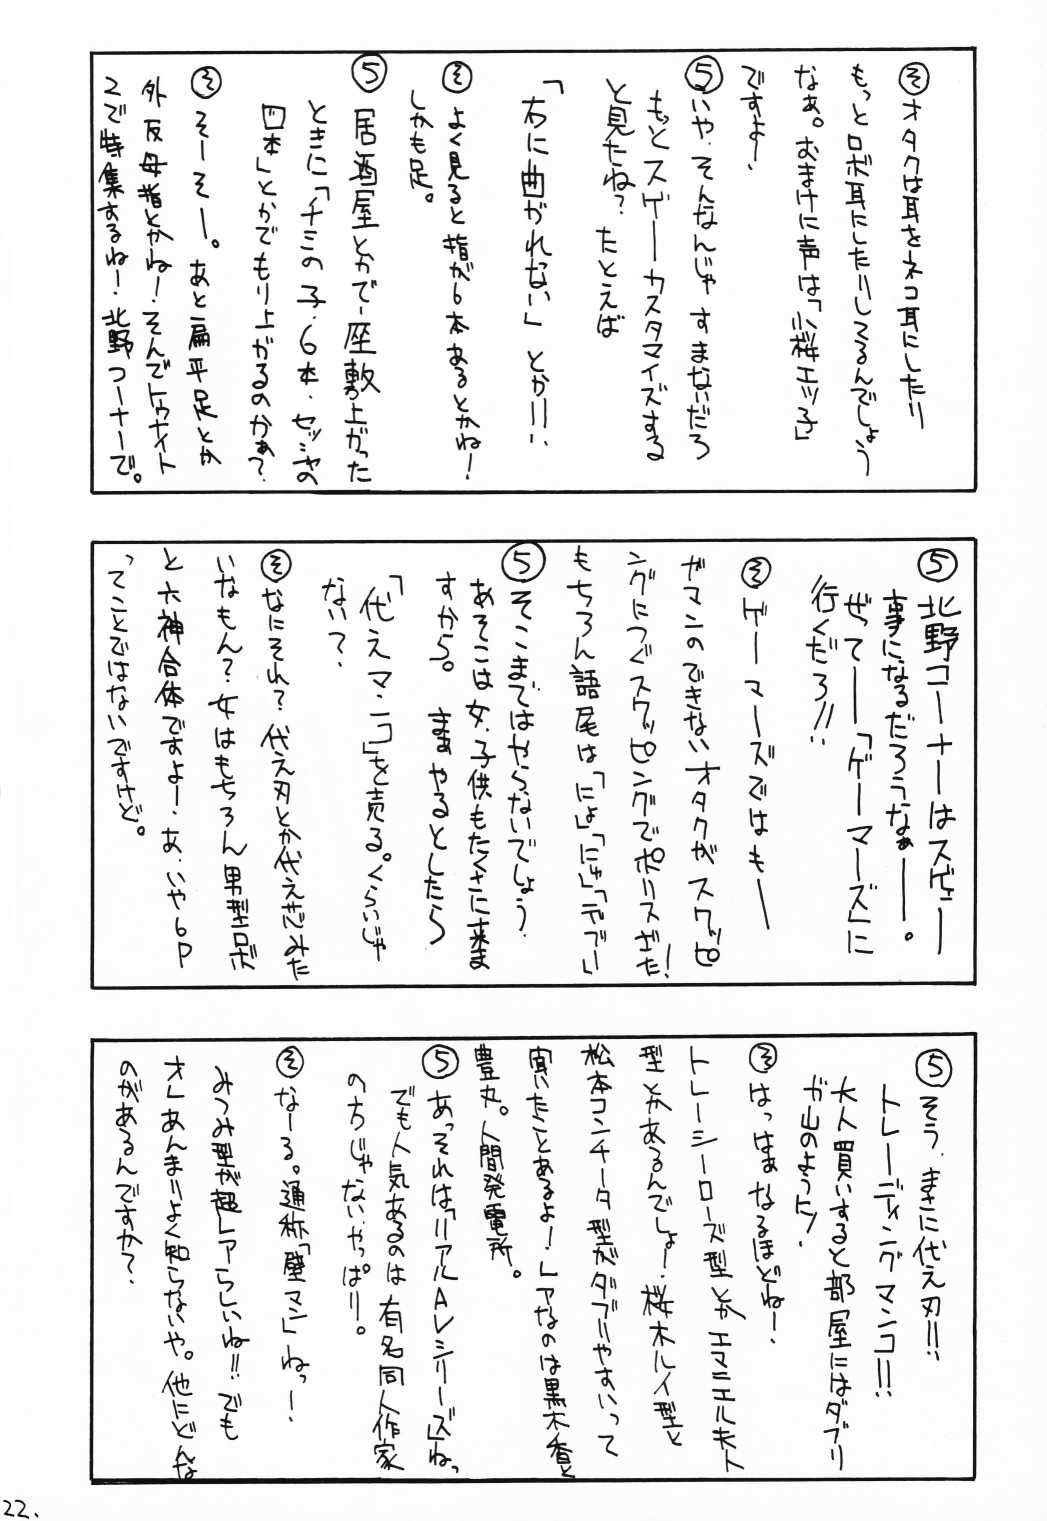 そ オタクは耳をネコ耳にしたり
もっとロボ耳にしたりしてるんでしょう
なぁ。おまけに声は「小桜エツ子」
ですよー、
5 いや、そんなんじゃすまないだろ
もっとスゲーカスタマイズする
と見たね? たとえば
「右に曲がれない」とか!!
そ よく見ると指が6本あるとかね!
しかも足。
5 居酒屋とかで座敷が上がった
ときに「チミの子、6本、セッシャの
四本」とかでもり上がるのかぁ?
そ そーそー。あと扁平足とか
外反母指とかね!そんでトゥナイト
2で特集するね!北野コーナーで。
5 北野コーナーはスゲェー
事になるだろうなぁー。
ぜってー「ゲーマーズ」に
行くだろ!!
そ ゲーマーズではもー
ガマンのできないオタクがスワッピ
ングにつぐスワッピングでポリスざた!
もちろん語尾は「にょ」「にゃ」「デブー」
5 そこまではやらないでしょう。
あそこは女、子供もたくさんに来ま
すから。 まぁやるとしたら
「代えマンコ」を売る。くらいじゃ
ない?
そ なにそれ? 代え刃とか代え芯みた
いなもん? 女はもちろん男型ロボ
と六神合体ですよー、あ、いや6P
ってことではないですけど。
5 そう、まさに代え刃!!
トレーディングマンコ!!
大人買いすると部屋にはダブリ
が山のように!
そ はっはぁなるほどねー、
トレーシーローズ型とかエマニエル夫人
型とかあるんでしょー、桜木ルイ型と
松本コンチータ型がダブりやすいって
聞いたことあるよー!レアなのは黒木香と
豊丸。人間発電所。
5 あっそれは「リアルAVシリーズ」ねっ
でも人気あるのは有名同人作家
の方じゃない、やっぱり。
そ なーる。通称「壁マン」ねっー、
みつみ型が超レアらしいね!!でも
オレあんまりよく知らないや。他にどんな
のがあるんですか?
22.